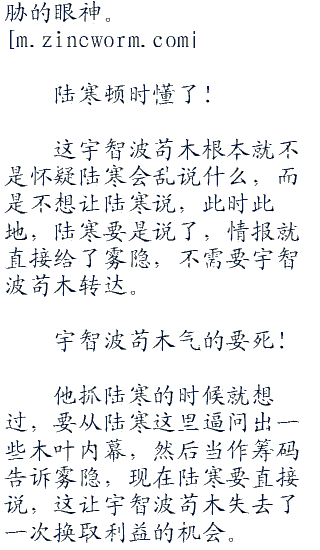 胁的眼神。
[m.zincworm.com]
陆寒顿时懂了！
这宇智波苟木根本就不
是怀疑陆寒会乱说什么，而
是不想让陆寒说，此时此
地，陆寒要是说了，情报就
直接给了雾隐，不需要宇智
波苟木转达。
宇智波苟木气的要死！
他抓陆寒的时候就想
过，要从陆寒这里逼问出一
些木叶内幕，然后当作筹码
告诉雾隐，现在陆寒要直接
说，这让宇智波苟木失去了
一次换取利益的机会。